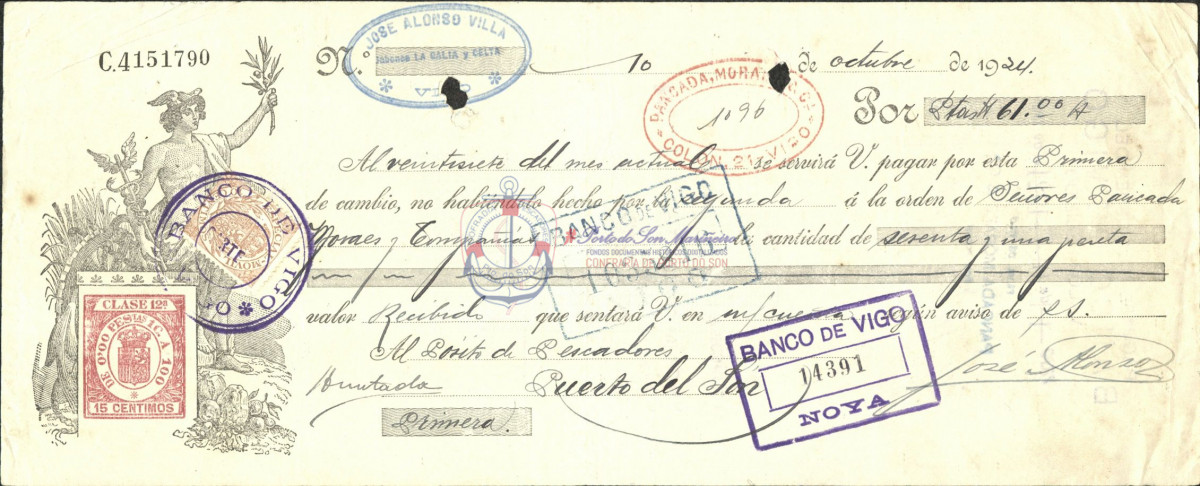 C.4151790
N
JOSE ALONSO VILLA
Jabones LA GALIA y CELTA
VIGO
10 de octubre de 1924.
COLON, 21, VIGO
1096
Por Ptas # 61.00 A
Al veintisiete del mes actual se servirá V. pagar por esta Primera
de cambio, no habiéndolo hecho por la segunda á la orden de Señores Pancada
Moraes y Compañia la cantidad de sesenta y una peseta
valor Recibido que sentará V. en m/ cuenta según aviso de s.s.
Al Pósito de Pescadores
Puerto del Son
Primera.
José Alonso
BANCO DE VIGO
BANCO DE VIGO
Porto do Son Mariñeiro
FONDOS DOCUMENTAIS HISTÓRICOS DIXITALIZADOS
CONFRARÍA DE PORTO DO SON
CLASE 12ª
DE 0'00 PESTAS A 100
15 CENTIMOS
BANCO DE VIGO
14391
NOYA